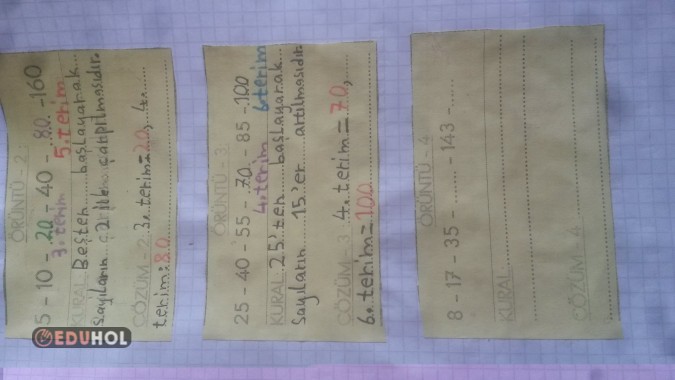 ÖRÜNTÜ - 2
5 - 10 - 20 - 40 - 80 - 160
3. terim 5. terim
KURAL Beşten başlayarak
sayıların 2 ile çarpılmasıdır.
ÇÖZÜM - 2 3. terim = 20,
terim: 80
ÖRÜNTÜ - 3
25 - 40 - 55 - 70 - 85 - 100
4. terim 6. terim
KURAL 25'ten başlayarak
sayıların 15'er artılmasıdır.
ÇÖZÜM - 3 4. terim = 70,
6. terim = 100
ÖRÜNTÜ - 4
8 - 17 - 35 - ........ - 143 - ........
KURAL
ÇÖZÜM - 4
EDUHOL